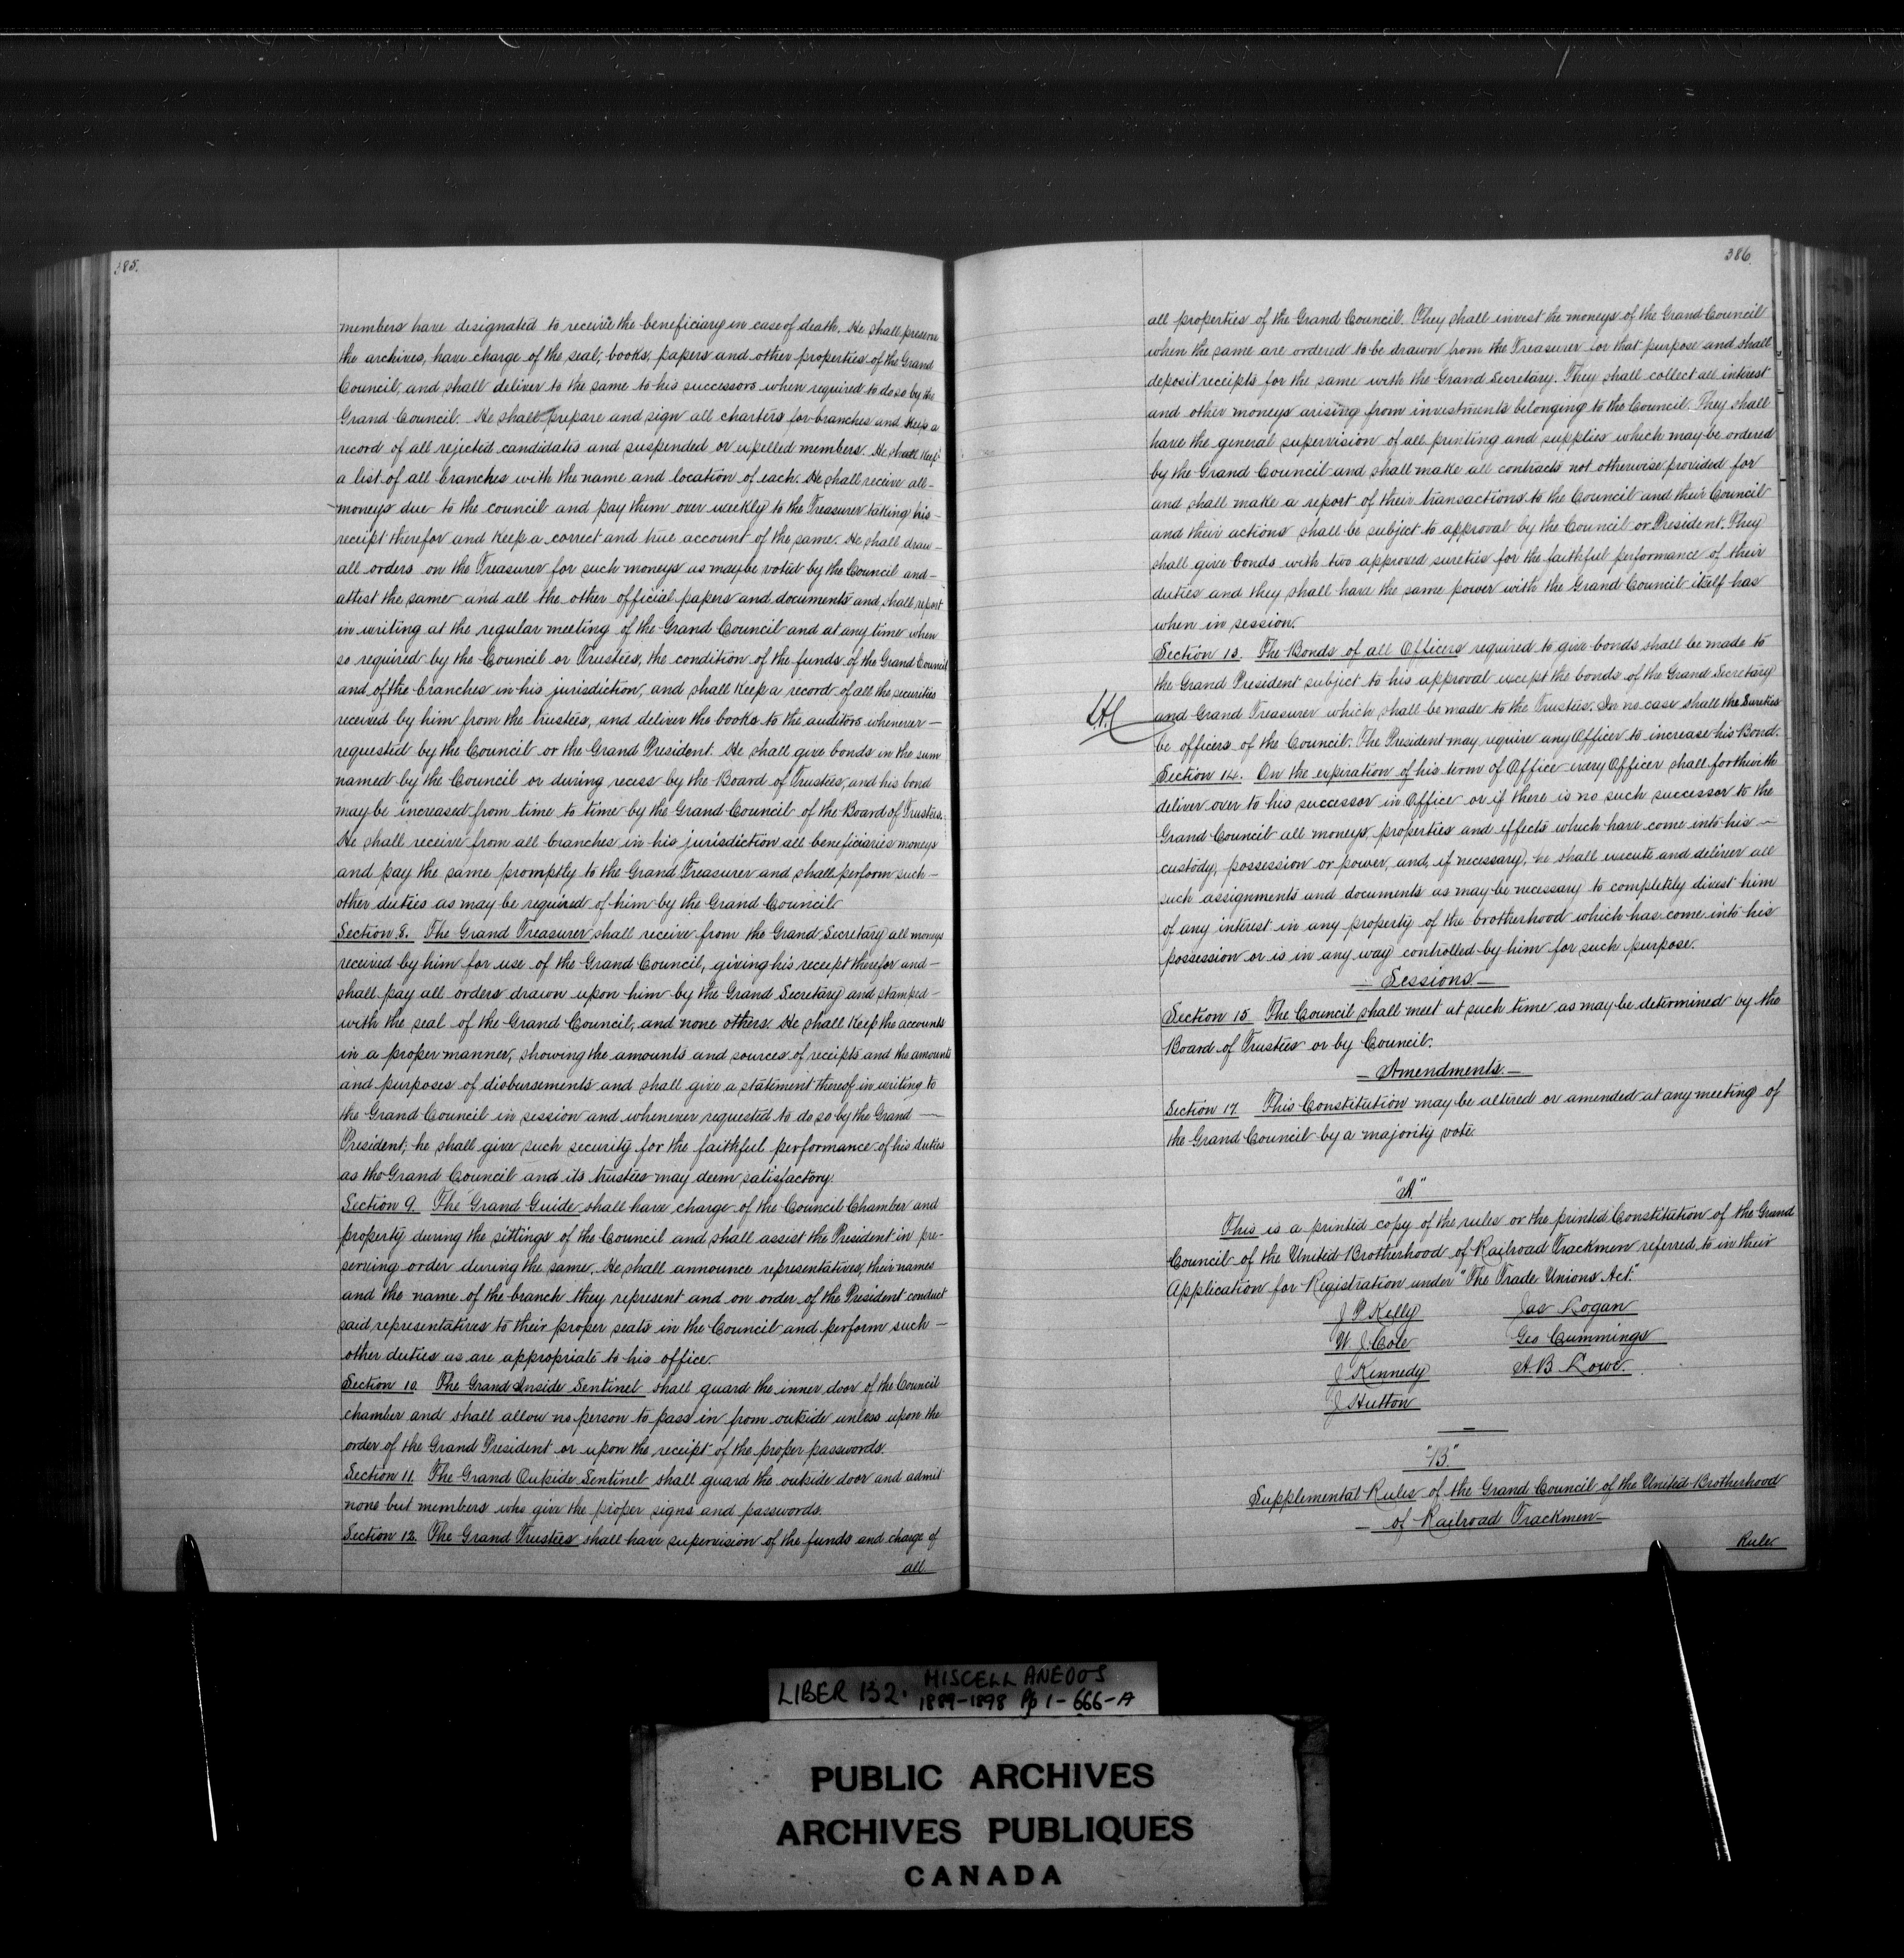 385.
members have designated to receive the beneficiary in case of death. He shall preserve
the archives, have charge of the seal, books, papers and other properties of the Grand
Council, and shall deliver to the same to his successors when required to do so by the
Grand Council. He shall prepare and sign all charters for branches and keep a
record of all rejected candidates and suspended or expelled members. He shall keep
a list of all branches with the name and location of each. He shall receive all-
moneys due to the council and pay them over weekly to the Treasurer taking his-
receipt therefor and keep a correct and true account of the same. He shall draw-
all orders on the Treasurer for such moneys as may be voted by the Council and-
attest the same and all the other official papers and documents and shall report
in writing at the regular meeting of the Grand Council and at any time when
so required by the Council or Trustees, the condition of the funds of the Grand Council
and of the branches in his jurisdiction, and shall keep a record of all the securities
received by him from the trustees, and deliver the books to the auditors whenever-
requested by the Council or the Grand President. He shall give bonds in the sum
named by the Council or during recess by the Board of Trustees, and his bond
may be increased from time to time by the Grand Council of the Board of Trustees.
He shall receive from all branches in his jurisdiction all beneficiaries moneys
and pay the same promptly to the Grand Treasurer and shall perform such-
other duties as may be required of him by the Grand Council.
Section 8. The Grand Treasurer shall receive from the Grand Secretary all moneys
received by him for use of the Grand Council, giving his receipt therefor and-
shall pay all orders drawn upon him by the Grand Secretary and stamped-
with the seal of the Grand Council, and none others. He shall keep the accounts
in a proper manner, showing the amounts and sources of receipts and the amounts
and purposes of disbursements and shall give a statement thereof in writing to
the Grand Council in session and whenever requested to do so by the Grand —
President, he shall give such security for the faithful performance of his duties
as the Grand Council and its trustees may deem satisfactory.
Section 9. The Grand Guide shall have charge of the Council Chamber and
property during the sittings of the Council and shall assist the President in pre-
serving order during the same. He shall announce representatives, their names
and the name of the branch they represent and on order of the President conduct
said representatives to their proper seats in the Council and perform such-
other duties as are appropriate to his office.
Section 10. The Grand Inside Sentinel shall guard the inner door of the Council
chamber and shall allow no person to pass in from outside unless upon the
order of the Grand President or upon the receipt of the proper passwords.
Section 11. The Grand Outside Sentinel shall guard the outside door and admit
none but members who give the proper signs and passwords.
Section 12. The Grand Trustees shall have supervision of the funds and charge of
all
386.
all properties of the Grand Council. They shall invest the moneys of the Grand Council
when the same are ordered to be drawn from the Treasurer for that purpose and shall
deposit receipts for the same with the Grand Secretary. They shall collect all interest
and other moneys arising from investments belonging to the Council. They shall
have the general supervision of all printing and supplies which may be ordered
by the Grand Council and shall make all contracts not otherwise provided for
and shall make a report of their transactions to the Council and their Council
and their actions shall be subject to approval by the Council or President. They
shall give bonds with two approved sureties for the faithful performance of their
duties and they shall have the same power with the Grand Council itself has
when in session.
Section 13. The Bonds of all Officers required to give bonds shall be made to
the Grand President subject to his approval except the bonds of the Grand Secretary
and Grand Treasurer which shall be made to the Trustees. In no case shall the Sureties
be officers of the Council. The President may require any Officer to increase his Bond.
Section 14. On the expiration of his term of Office every Officer shall forthwith
deliver over to his successor in Office or if there is no such successor to the
Grand Council all moneys, properties and effects which have come into his-
custody, possession or power, and, if necessary, he shall execute and deliver all
such assignments and documents as may be necessary to completely divest him
of any interest in any property of the brotherhood which has come into his
possession or is in any way controlled by him for such purpose.
— Sessions —
Section 15. The Council shall meet at such time as may be determined by the
Board of Trustees or by Council.
— Amendments. —
Section 17. This Constitution may be altered or amended at any meeting of
the Grand Council by a majority vote.
"A."
This is a printed copy of the rules or the printed Constitution of the Grand
Council of the United Brotherhood of Railroad Trackmen referred to in their
Application for Registration under "The Trade Unions Act."
J P Kelly Jas Logan
W J. Cole Geo Cummings
J Kennedy A. B. Lowe.
J Hutton
"B."
Supplemental Rules of the Grand Council of the United Brotherhood
— of Railroad Trackmen —
Rules
LIBER 132. MISCELLANEOUS
1889-1898 Pp 1-666-A
PUBLIC ARCHIVES
ARCHIVES PUBLIQUES
CANADA